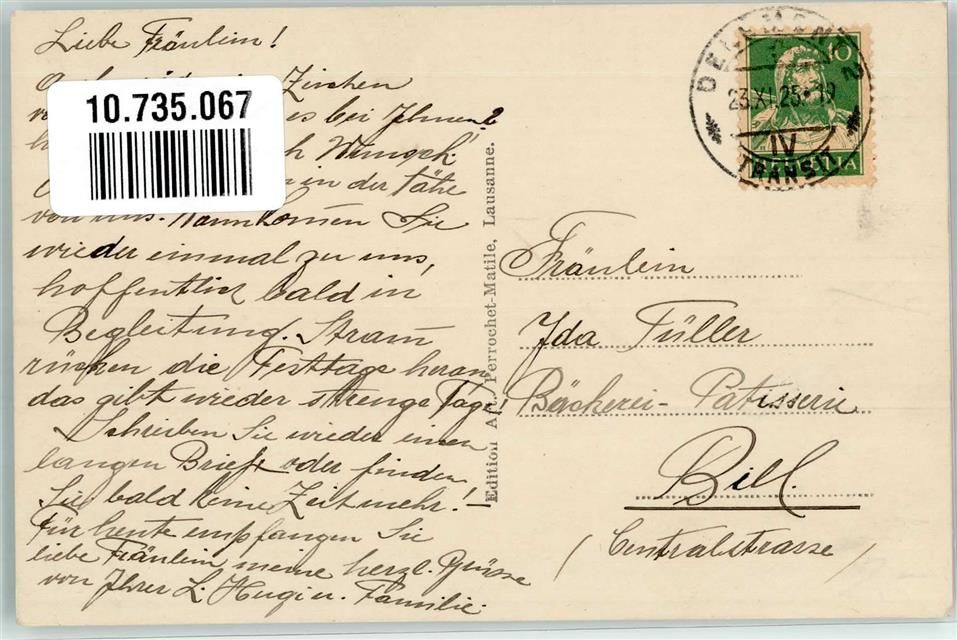 Liebe Fräulein!
Zirchen
es bei Ihnen?
h Wunsch!
in der Nähe
von uns. Wann kom̄en Sie
wieder einmal zu uns,
hoffentlich bald in
Begleitung. Stram̄
rücken die Festtage heran
das gibt wieder strenge Tage,
Schreiben Sie wieder einen
langen Brief, oder finden
Sie bald keine Zeit mehr!
Für heute empfangen Sie
liebe Fräulein meine herzl. Grüsse
von Ihrer L. Hugi u. Familie.
10.735.067
Edition Art. Perrochet-Matile, Lausanne.
DELÉMONT 2
23.XI.25.-19
IV
TRANSIT
10
HELVETIA
Fräulein
Ida Füller
Bäckerei-Patisserie
Biel.
(Centralstrasse)